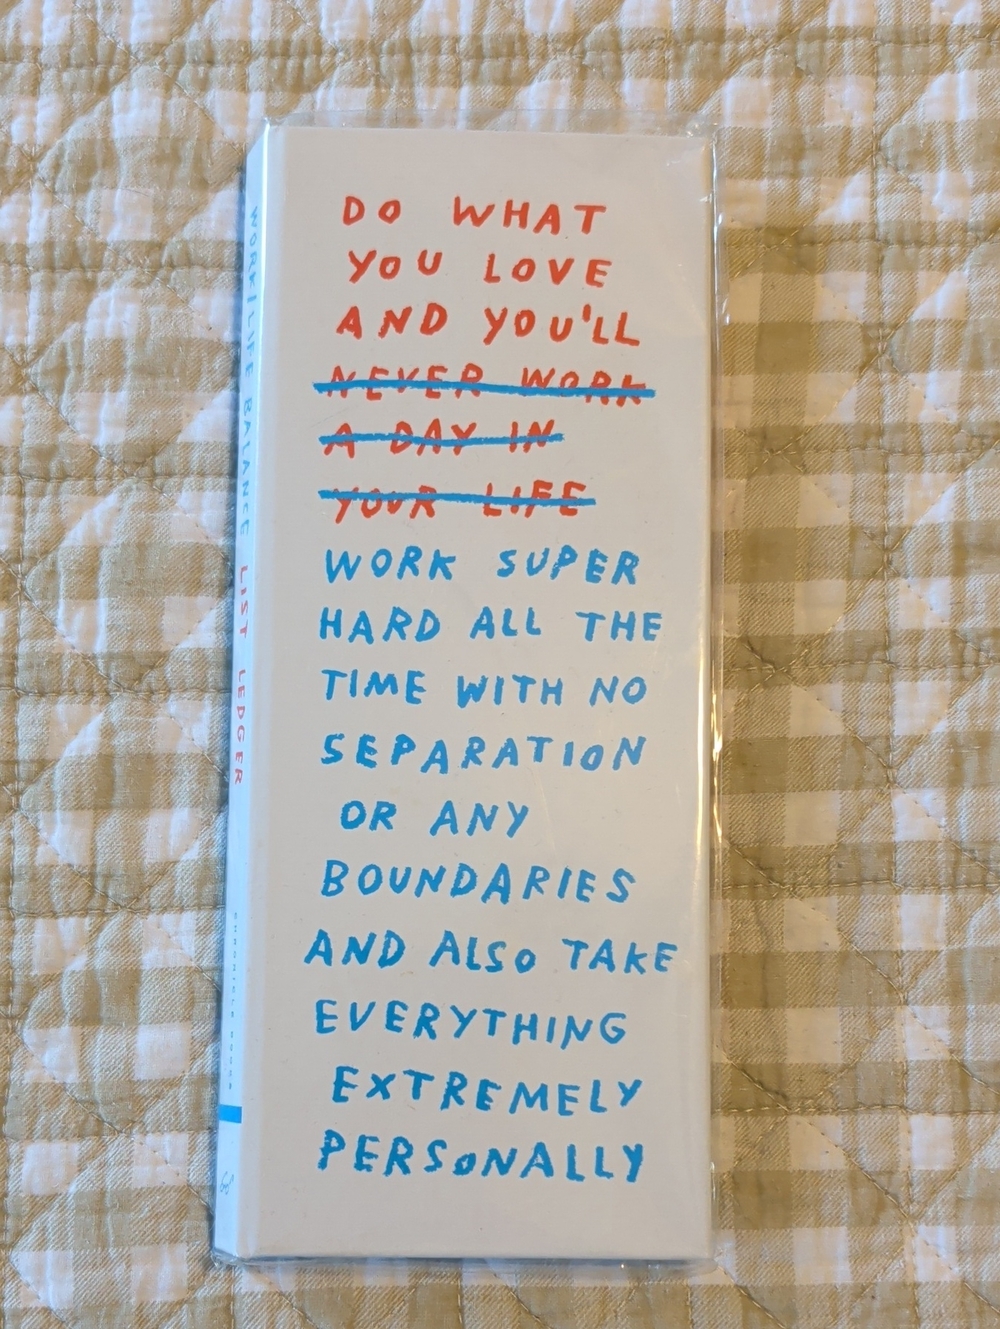 DO WHAT
YOU LOVE
AND YOU'LL
NEVER WORK
A DAY IN
YOUR LIFE
WORK SUPER
HARD ALL THE
TIME WITH NO
SEPARATION
OR ANY
BOUNDARIES
AND ALSO TAKE
EVERYTHING
EXTREMELY
PERSONALLY
WORK/LIFE BALANCE LIST LEDGER
CHRONICLE BOOKS